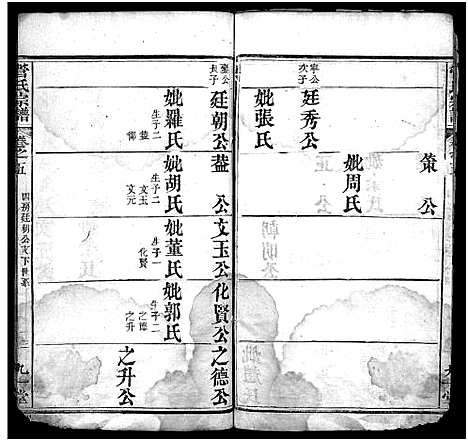 寧公
次子
廷秀公
妣張氏
策公
妣周氏
寧公
長子
廷朝公
妣羅氏
生子二
益
益公
妣胡氏
生子二
文玉
文元
文玉公
妣董氏
生子一
化賢
化賢公
妣郭氏
生子二
之德
之升
之德公
之升公
管氏宗譜
卷之五
四房廷朝公文下世系
九
堂